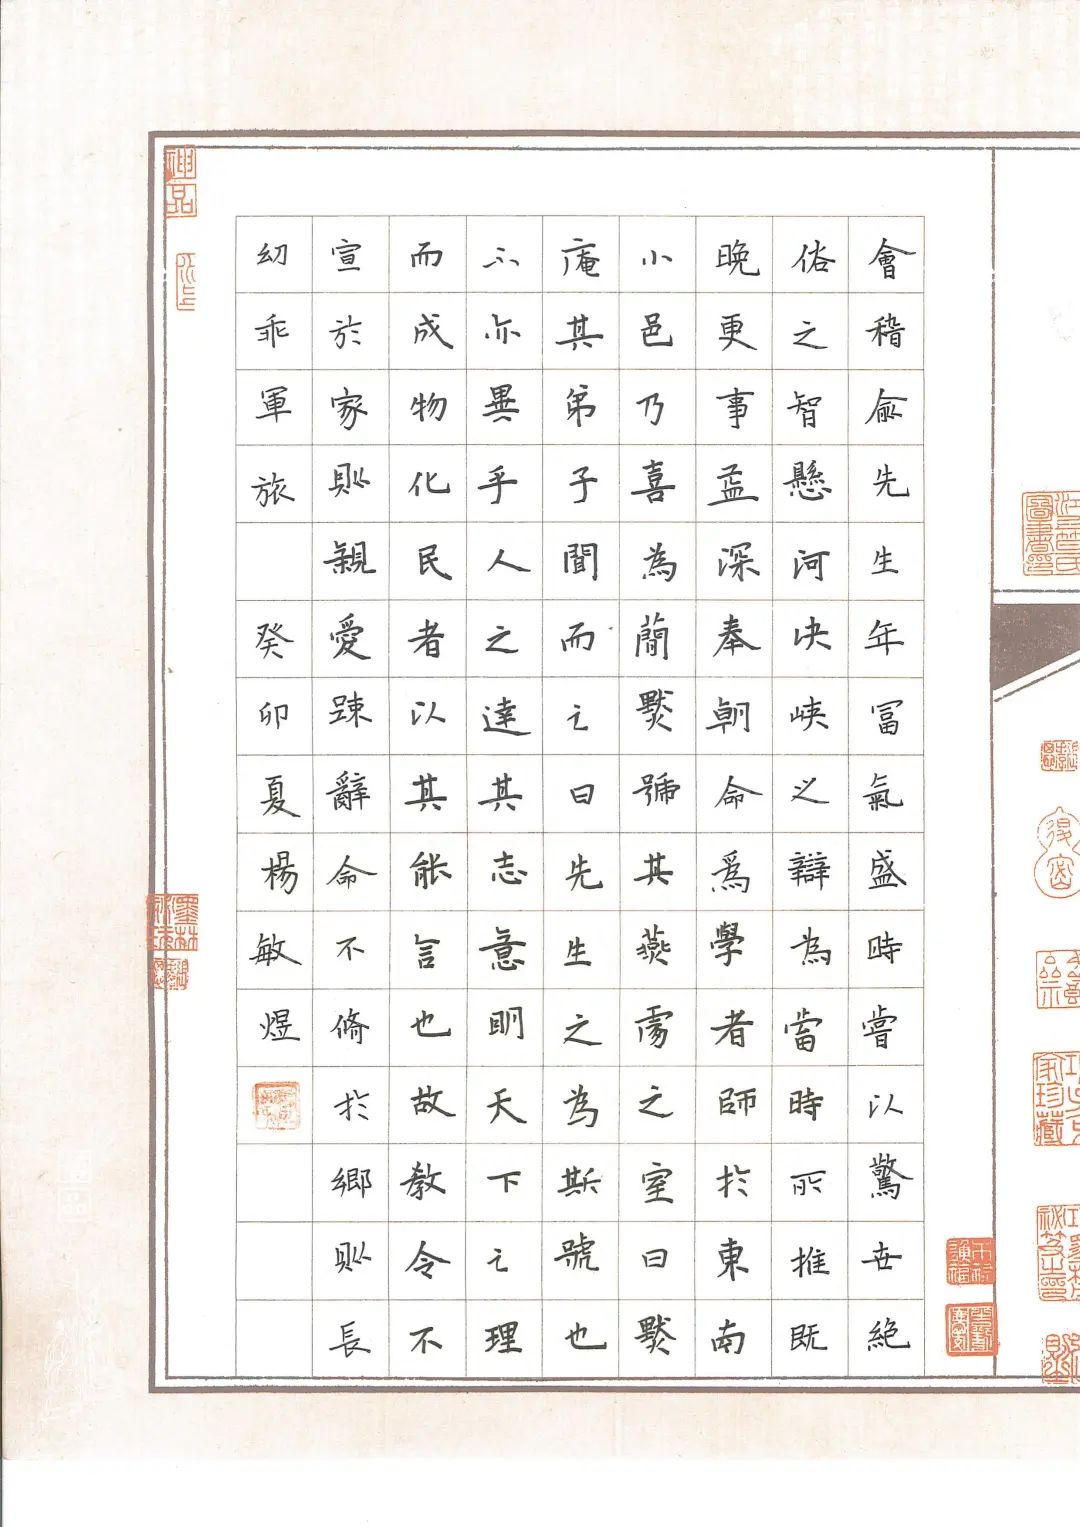 會稽俞先生年冨氣盛時嘗以驚世絶
俗之智懸河决峡之辯為當時所推既
晩更事益深奉朝命爲學者師於東南
小邑乃喜為蕑黙號其燕處之室曰黙
庵其弟子聞而之曰先生之為斯號也
不亦異乎人之達其志意明天下之理
而成物化民者以其能言也故教令不
宣於家則親愛踈辭命不脩於鄉則長
幼乖軍旅 癸卯夏楊敏煜
神品